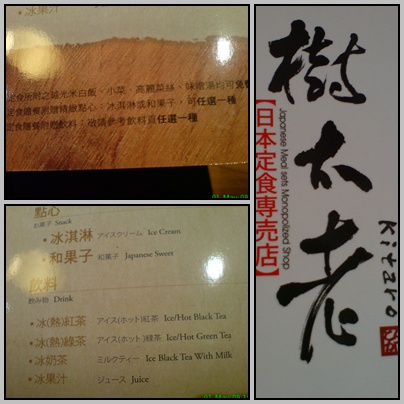 •冰果汁
定食所附之越光米白飯、小菜、高麗菜絲、味噌湯均可免
定食隨餐附贈精緻點心：冰淇淋或和果子，可任選一種
定食隨餐附贈飲料：敬請參考飲料頁任選一種
點心
お菓子 Snack
•冰淇淋 アイスクリーム Ice Cream
•和果子 和菓子 Japanese Sweet
飲料
飲み物 Drink
•冰(熱)紅茶 アイス(ホット)紅茶 Ice/Hot Black Tea
•冰(熱)綠茶 アイス(ホット)緑茶 Ice/Hot Green Tea
•冰奶茶 ミルクティー Ice Black Tea With Milk
•冰果汁 ジュース Juice
樹太老
Kitaro
【日本定食専売店】
Japanese Meal sets Monopolized Shop